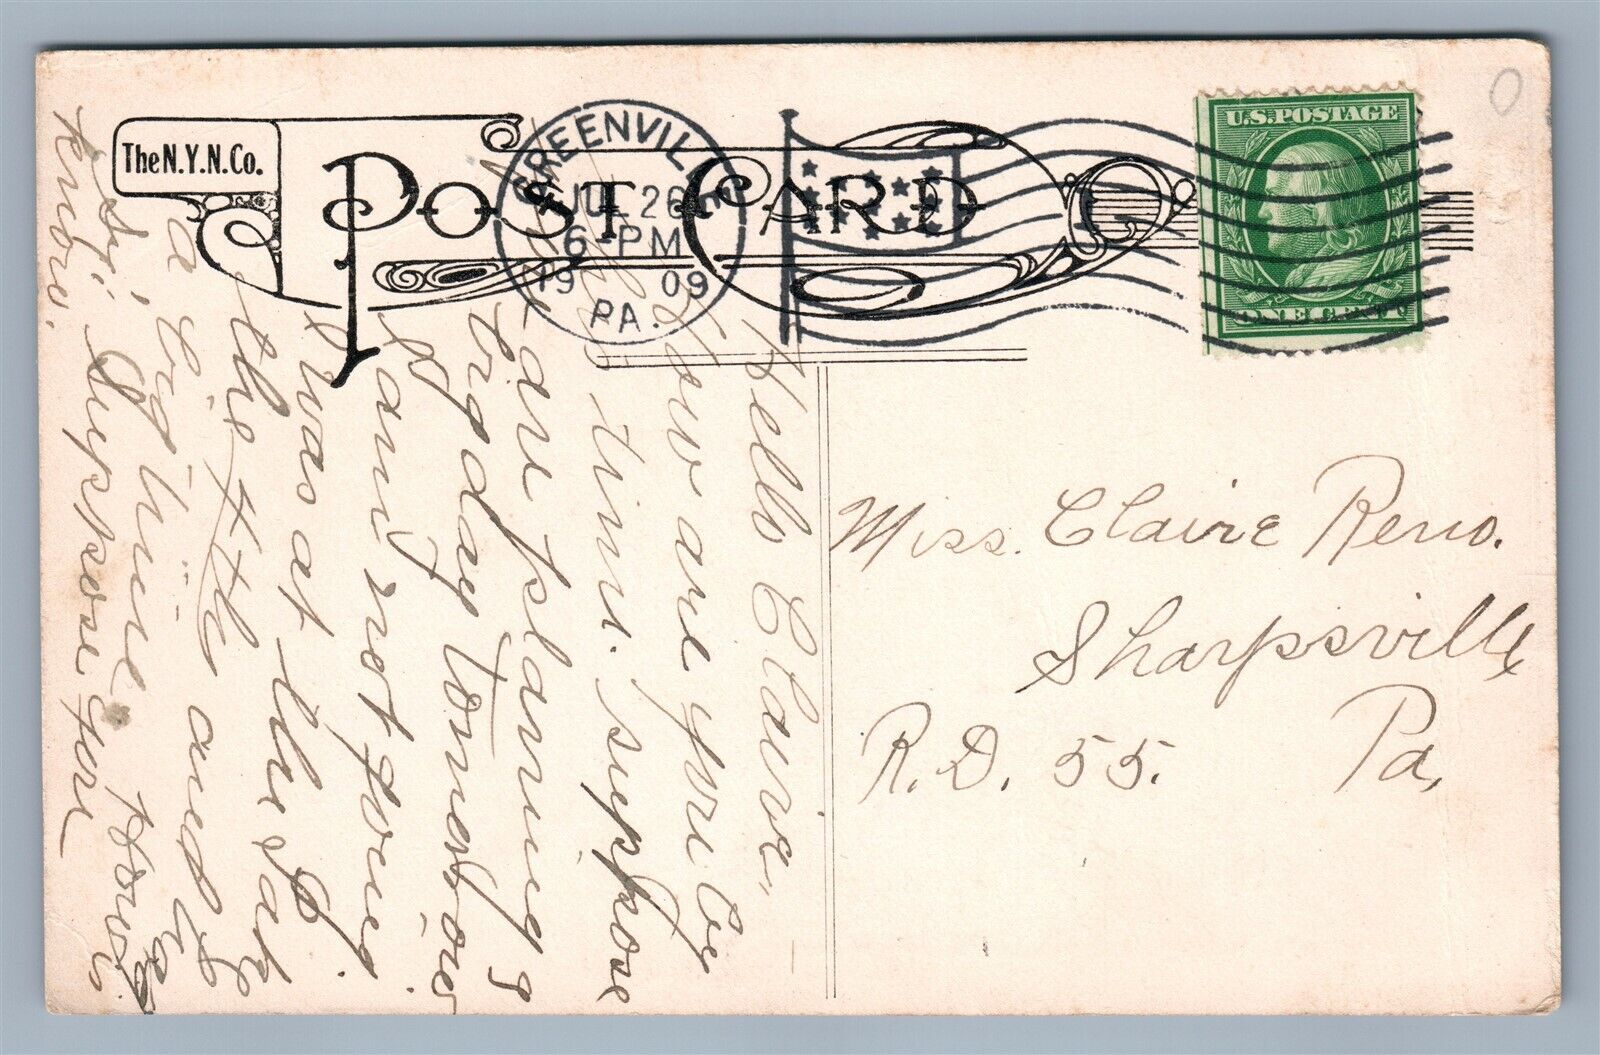 The N.Y.N.Co.
POST CARD
GREENVILLE
JUL 26
6-PM
1909
PA.
U.S. POSTAGE
ONE CENT
Hello Claire,
How are you by
this time. suppose
are planning
big day tomorrow
I am not going
I was at the
the 4th and
a big time. How is
Si, Suppose you
know.
Miss. Claire Reno.
Sharpsville
R.D. 55. Pa,
0